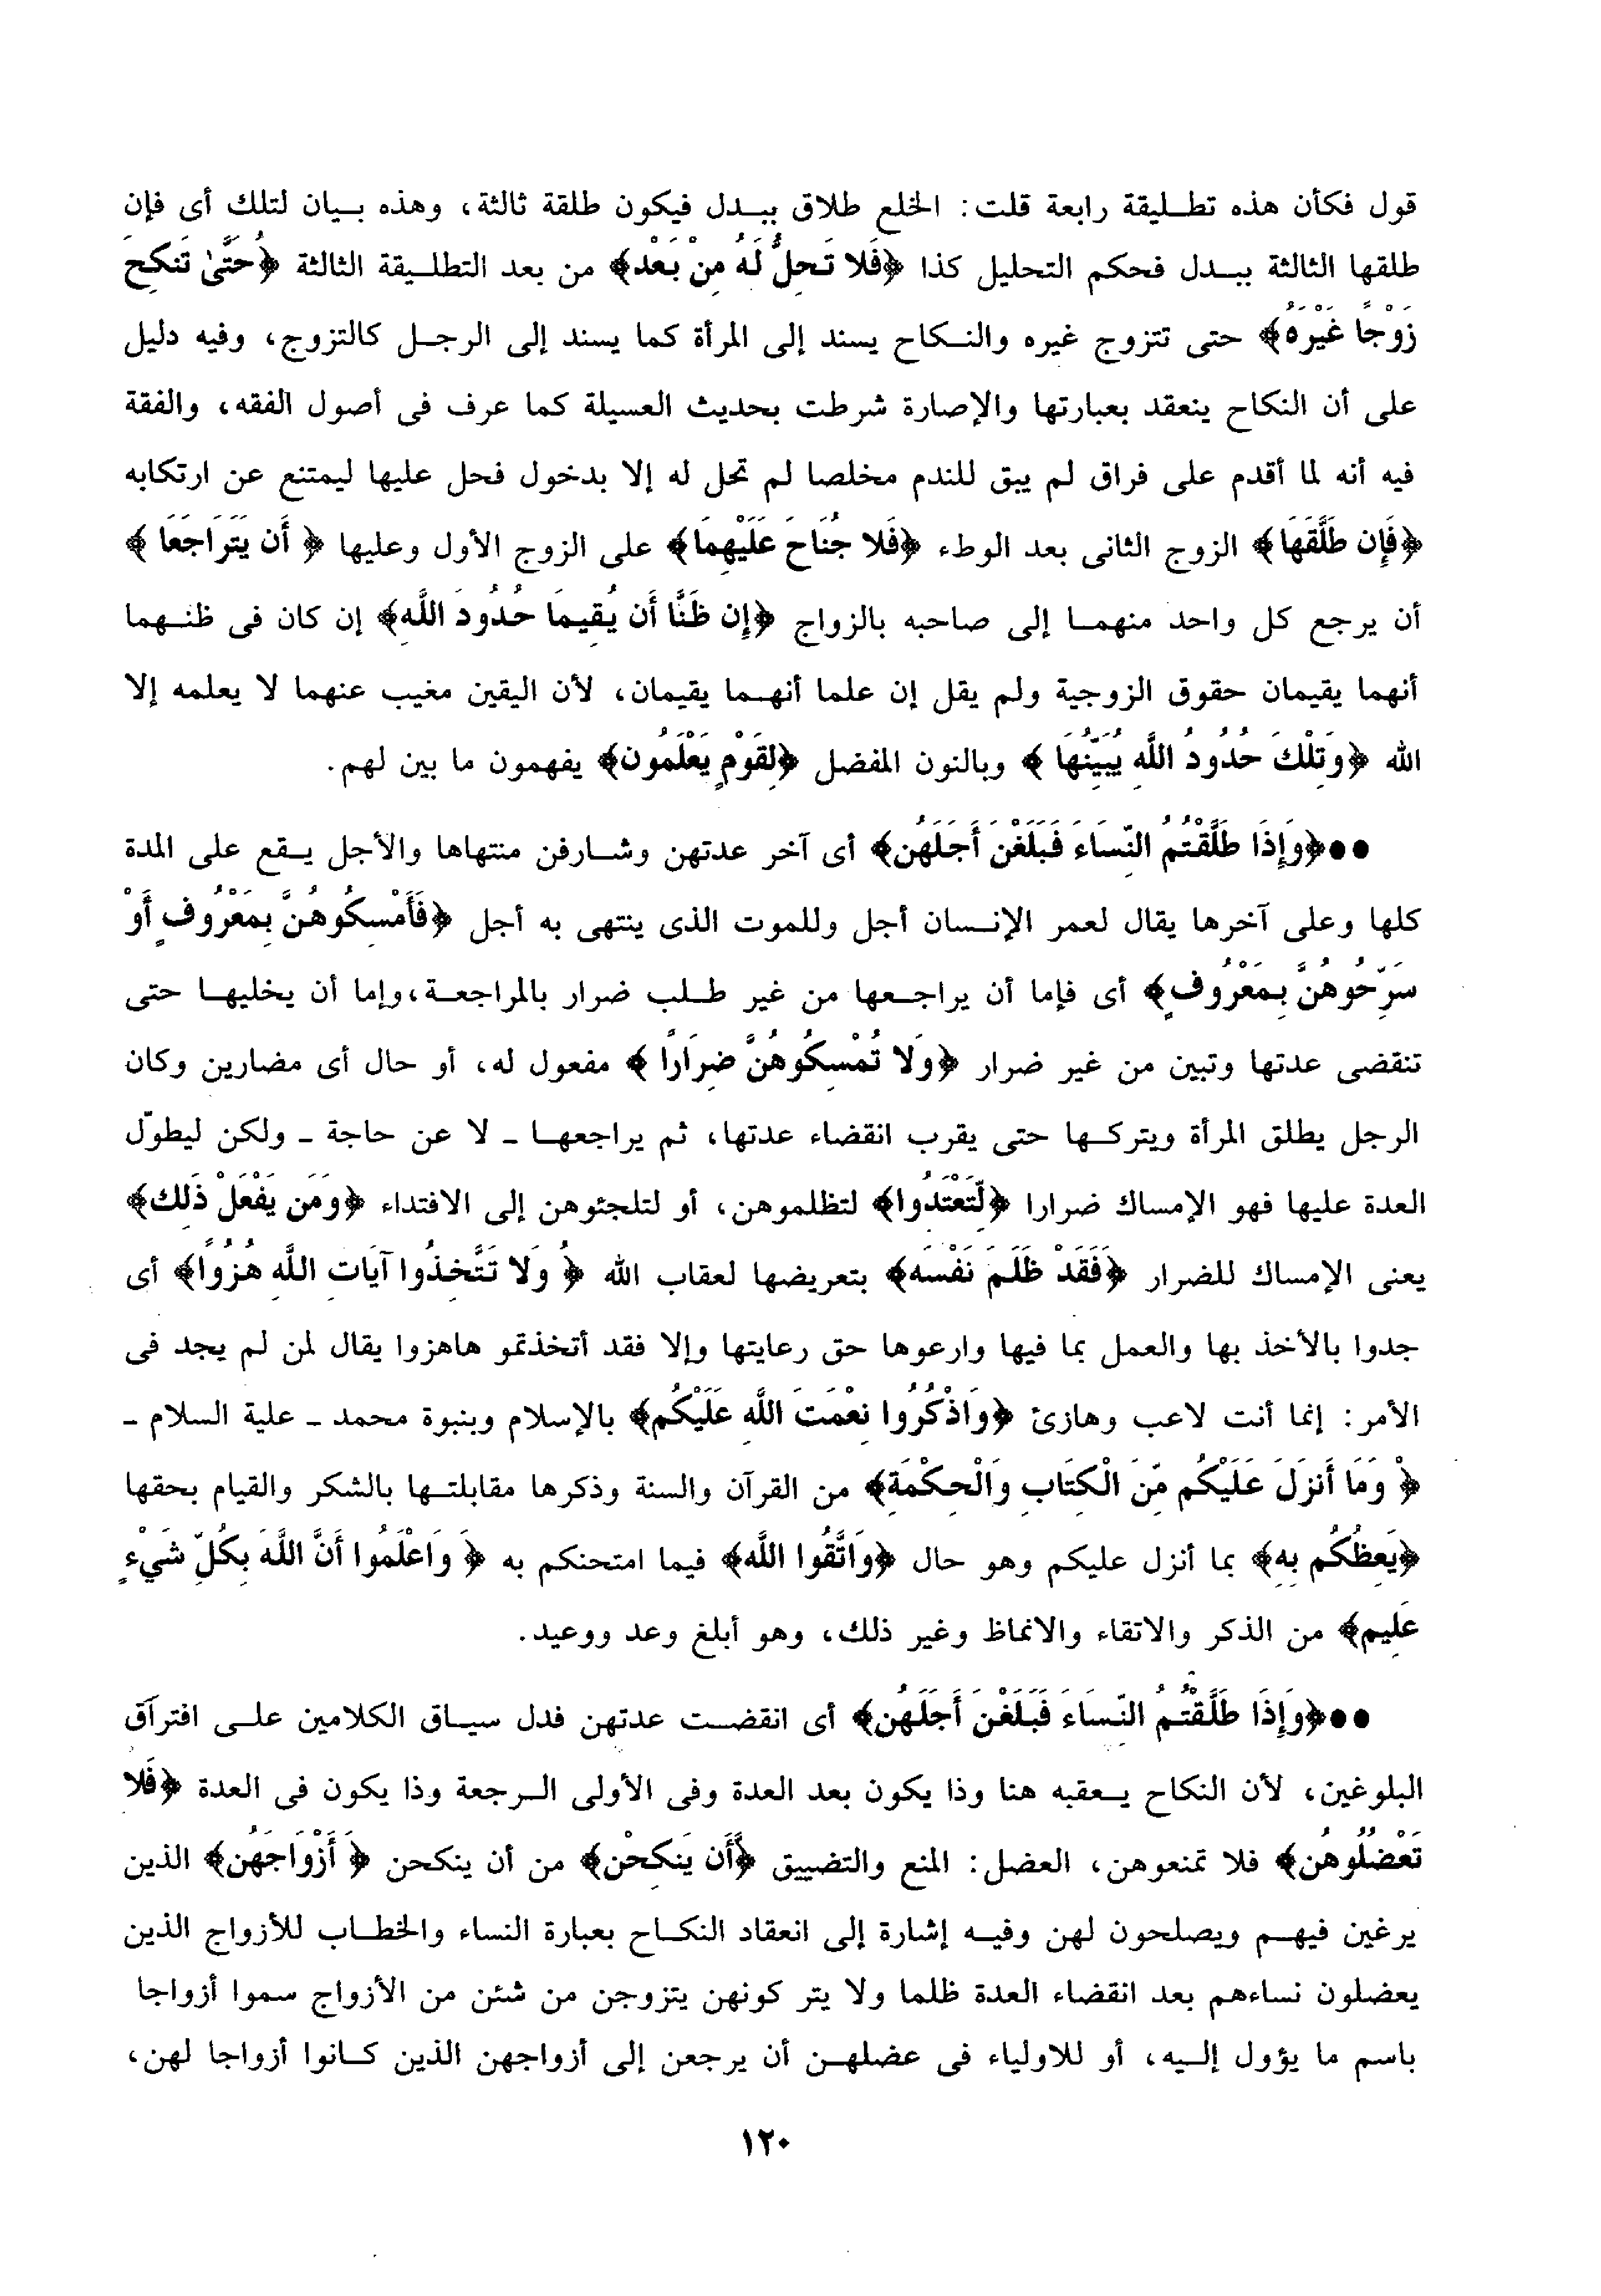 قول فكأن هذه تطليقة رابعة قلت: الخلع طلاق ببدل فيكون طلقة ثالثة، وهذه بيان لتلك أى فإن
طلقها الثالثة ببدل فحكم التحليل كذا ﴿فَلا تَحِلُّ لَهُ مِنْ بَعْدُ﴾ من بعد التطليقة الثالثة ﴿حَتَّىٰ تَنكِحَ
زَوْجًا غَيْرَهُ﴾ حتى تتزوج غيره والنكاح يسند إلى المرأة كما يسند إلى الرجل كالتزوج، وفيه دليل
على أن النكاح ينعقد بعبارتها والإصارة شرطت بحديث العسيلة كما عرف فى أصول الفقه، والفقة
فيه أنه لما أقدم على فراق لم يبق للندم مخلصا لم تحل له إلا بدخول فحل عليها ليمتنع عن ارتكابه
﴿فَإِن طَلَّقَهَا﴾ الزوج الثانى بعد الوطء ﴿فَلا جُنَاحَ عَلَيْهِمَا﴾ على الزوج الأول وعليها ﴿ أَن يَتَرَاجَعَا ﴾
أن يرجع كل واحد منهما إلى صاحبه بالزواج ﴿إِن ظَنَّا أَن يُقِيمَا حُدُودَ اللَّهِ﴾ إن كان فى ظنهما
أنهما يقيمان حقوق الزوجية ولم يقل إن علما أنهما يقيمان، لأن اليقين مغيب عنهما لا يعلمه إلا
الله ﴿وَتِلْكَ حُدُودُ اللَّهِ يُبَيِّنُهَا ﴾ وبالنون المفضل ﴿لِقَوْمٍ يَعْلَمُونَ﴾ يفهمون ما بين لهم.
●●﴿وَإِذَا طَلَّقْتُمُ النِّسَاءَ فَبَلَغْنَ أَجَلَهُن﴾ أى آخر عدتهن وشارفن منتهاها والأجل يقع على المدة
كلها وعلى آخرها يقال لعمر الإنسان أجل وللموت الذى ينتهى به أجل ﴿فَأَمْسِكُوهُنَّ بِمَعْرُوفٍ أَوْ
سَرِّحُوهُنَّ بِمَعْرُوفٍ﴾ أى فإما أن يراجعها من غير طلب ضرار بالمراجعة،وإما أن يخليها حتى
تنقضى عدتها وتبين من غير ضرار ﴿وَلا تُمْسِكُوهُنَّ ضِرَارًا ﴾ مفعول له، أو حال أى مضارين وكان
الرجل يطلق المرأة ويتركها حتى يقرب انقضاء عدتها، ثم يراجعها ـ لا عن حاجة ـ ولكن ليطوّل
العدة عليها فهو الإمساك ضرارا ﴿لِّتَعْتَدُوا﴾ لتظلموهن، أو لتلجئوهن إلى الافتداء ﴿وَمَن يَفْعَلْ ذَلِكَ﴾
يعنى الإمساك للضرار ﴿فَقَدْ ظَلَمَ نَفْسَه﴾ بتعريضها لعقاب الله ﴿ وَلا تَتَّخِذُوا آيَاتِ اللَّهِ هُزُوًا﴾ أى
جدوا بالأخذ بها والعمل بما فيها وارعوها حق رعايتها وإلا فقد أتخذتمو هاهزوا يقال لمن لم يجد فى
الأمر: إنما أنت لاعب وهازئ ﴿وَاذْكُرُوا نِعْمَتَ اللَّهِ عَلَيْكُم﴾ بالإسلام وبنبوة محمد ـ علية السلام ـ
﴿ وَمَا أَنزَلَ عَلَيْكُم مِّنَ الْكِتَابِ وَالْحِكْمَةِ﴾ من القرآن والسنة وذكرها مقابلتها بالشكر والقيام بحقها
﴿يَعِظُكُم بِهِ﴾ بما أنزل عليكم وهو حال ﴿وَاتَّقُوا اللَّه﴾ فيما امتحنكم به ﴿ وَاعْلَمُوا أَنَّ اللَّهَ بِكُلِّ شَيْءٍ
عَلِيم﴾ من الذكر والاتقاء والاتماظ وغير ذلك، وهو أبلغ وعد ووعيد.
●●﴿وَإِذَا طَلَّقْتُمُ النِّسَاءَ فَبَلَغْنَ أَجَلَهُن﴾ أى انقضت عدتهن فدل سياق الكلامين على افتراق
البلوغين، لأن النكاح يعقبه هنا وذا يكون بعد العدة وفى الأولى الرجعة وذا يكون فى العدة ﴿فَلا
تَعْضُلُوهُن﴾ فلا تمنعوهن، العضل: المنع والتضييق ﴿أَن يَنكِحْن﴾ من أن ينكحن ﴿ أَزْوَاجَهُن﴾ الذين
يرغين فيهم ويصلحون لهن وفيه إشارة إلى انعقاد النكاح بعبارة النساء والخطاب للأزواج الذين
يعضلون نساءهم بعد انقضاء العدة ظلما ولا يتر كونهن يتزوجن من شئن من الأزواج سموا أزواجا
باسم ما يؤول إليه، أو للاولياء فى عضلهن أن يرجعن إلى أزواجهن الذين كانوا أزواجا لهن،
١٢٠